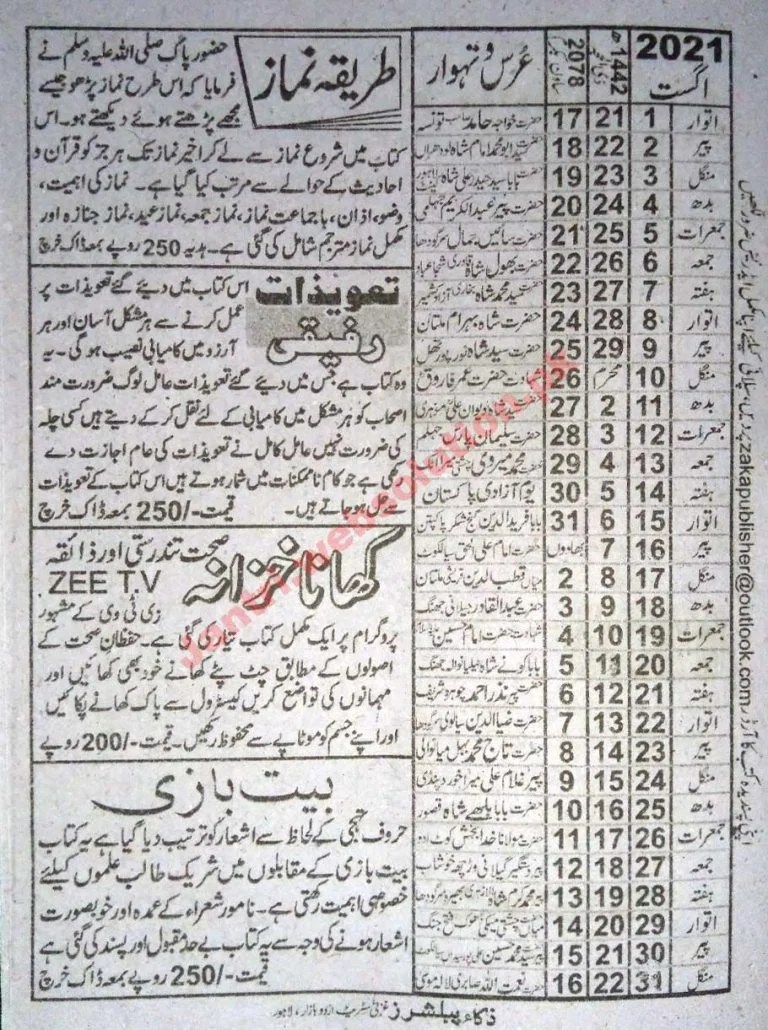 2021
اگست
1442ھ
ذی الحجہ
2078
ساون
عُرس و تہوار
اتوار 1 21 17 حضرت خواجہ حامد تونسہ
پیر 2 22 18 امام شاہ لودھراں
منگل 3 23 19 بابا سید حیدر علی شاہ لاہور
بدھ 4 24 20 حضرت پیر عبدالکریم جہلمی
جمعرات 5 25 21 حضرت سائیں جمال سرگودھا
جمعہ 6 26 22 حضرت بھول شاہ قادری شجاعباد
ہفتہ 7 27 23 سید محمد شاہ بخاری آزاد کشمیر
اتوار 8 28 24 حضرت شاہ بہرام ملتان
پیر 9 29 25 حضرت سید شاہ نور پور تھل
منگل 10 محرم 26 شہادت حضرت عمر فاروق
بدھ 11 2 27 شاہ دیوان علی
جمعرات 12 3 28 حضرت سلیمان پارس جہلم
جمعہ 13 4 29 حضرت محمد میروی
ہفتہ 14 5 30 یوم آزادی پاکستان
اتوار 15 6 31 بابا فرید الدین گنج شکر پاکپتن
پیر 16 7 بھادوں حضرت امام علی الحق سیالکوٹ
منگل 17 8 2 میاں قطب الدین ملتان
بدھ 18 9 3 حضرت عبدالقادر جیلانی جھنگ
جمعرات 19 10 4 شہادت حضرت امام حسین
جمعہ 20 11 5 بابا شاہ جھنگ
ہفتہ 21 12 6 حضرت پیر نذر احمد شریف
اتوار 22 13 7 حضرت ضیاالدین سیالوی سرگودھا
پیر 23 14 8 حضرت تاج محمد میانوالی
منگل 24 15 9 پیر غلام علی پنڈی
بدھ 25 16 10 حضرت بابا بلھے شاہ قصور
جمعرات 26 17 11 حضرت مولانا خدا بخش کوٹ ادو
جمعہ 27 18 12 گیلانی خوشاب
ہفتہ 28 19 13 پیر محمد کرم شاہ بھیرہ سرگودھا
اتوار 29 20 14 چشتی جنگ
پیر 30 21 15 پیر محمد حسین
منگل 31 22 16 حضرت نعمت اللہ صابری لالہ موسیٰ
طریقہ نماز
حضور پاک صلی اللہ علیہ وسلم نے
فرمایا کہ اس طرح نماز پڑھو جیسے
مجھے پڑھتے ہوئے دیکھتے ہو۔ اس
کتاب میں شروع نماز سے لے کر اخیر نماز تک ہر جز کو قرآن و
احادیث کے حوالے سے مرتب کیا گیا ہے۔ نماز کی اہمیت،
وضو، اذان، باجماعت نماز، نماز جمعہ، نماز عید، نماز جنازہ اور
مکمل نماز مترجم شامل کی گئی ہے۔ ہدیہ 250 روپے بمعہ ڈاک خرچ
تعویذات
رفیق
اس کتاب میں دیئے گئے تعویذات پر
عمل کرنے سے ہر مشکل آسان اور ہر
آرزو میں کامیابی نصیب ہوگی۔ یہ
وہ کتاب ہے جس میں دیئے گئے تعویذات عامل لوگ ضرورت مند
اصحاب کو ہر مشکل میں کامیابی کے لئے نقل کر کے دیتے ہیں کسی چلہ
کی ضرورت نہیں عامل کامل نے تعویذات کی عام اجازت دے
رکھی ہے جو کام ناممکنات میں شمار ہوتے ہیں اس کتاب کے تعویذات
سے حل ہو جاتے ہیں۔ قیمت -/250 بمعہ ڈاک خرچ
کھانا خزانہ
صحت تندرستی اور ذائقہ
ZEE T.V
زی ٹی وی کے مشہور
پروگرام پر ایک مکمل کتاب تیار کی گئی ہے۔ حفظان صحت کے
اصولوں کے مطابق چٹ پٹے کھانے خود بھی کھائیں اور
مہمانوں کی تواضع کریں کیسٹرول سے پاک کھانے پکائیں
اور اپنے جسم کو موٹاپے سے محفوظ رکھیں۔ قیمت -/200 روپے
بیت بازی
حروف تہجی کے لحاظ سے اشعار کو ترتیب دیا گیا ہے یہ کتاب
بیت بازی کے مقابلوں میں شریک طالب علموں کیلئے
خصوصی اہمیت رکھتی ہے۔ نامور شعراء کے عمدہ اور خوبصورت
اشعار ہونے کی وجہ سے یہ کتاب بے حد مقبول اور پسند کی گئی ہے
قیمت -/250 روپے بمعہ ڈاک خرچ
اپنی پسندیدہ کتب کا آرڈر zakapublisher@outlook.com پر دیں، سپلائی کیلئے اپنا مکمل ایڈریس ضرور لکھیں
ذکاء پبلشرز غزنی سٹریٹ اردو بازار، لاہور
Jantri.websolution.pk